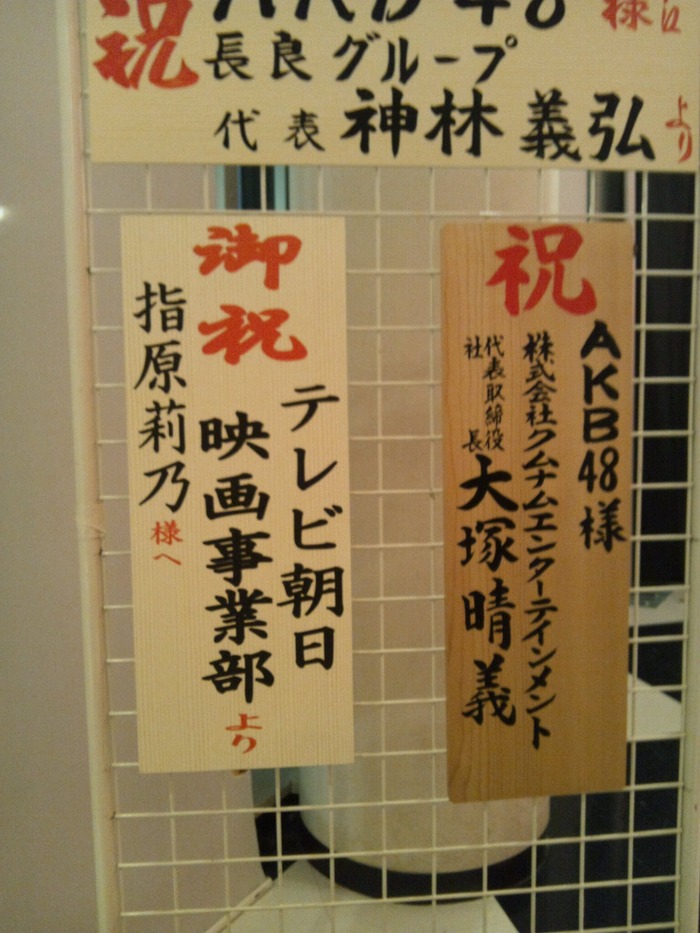 祝
AKB48
様江
長良グループ
代表 神林 義弘 より
御祝
テレビ朝日
映画事業部より
指原莉乃様へ
祝
AKB48様
株式会社クムナムエンターテインメント
代表取締役
社長
大塚晴義